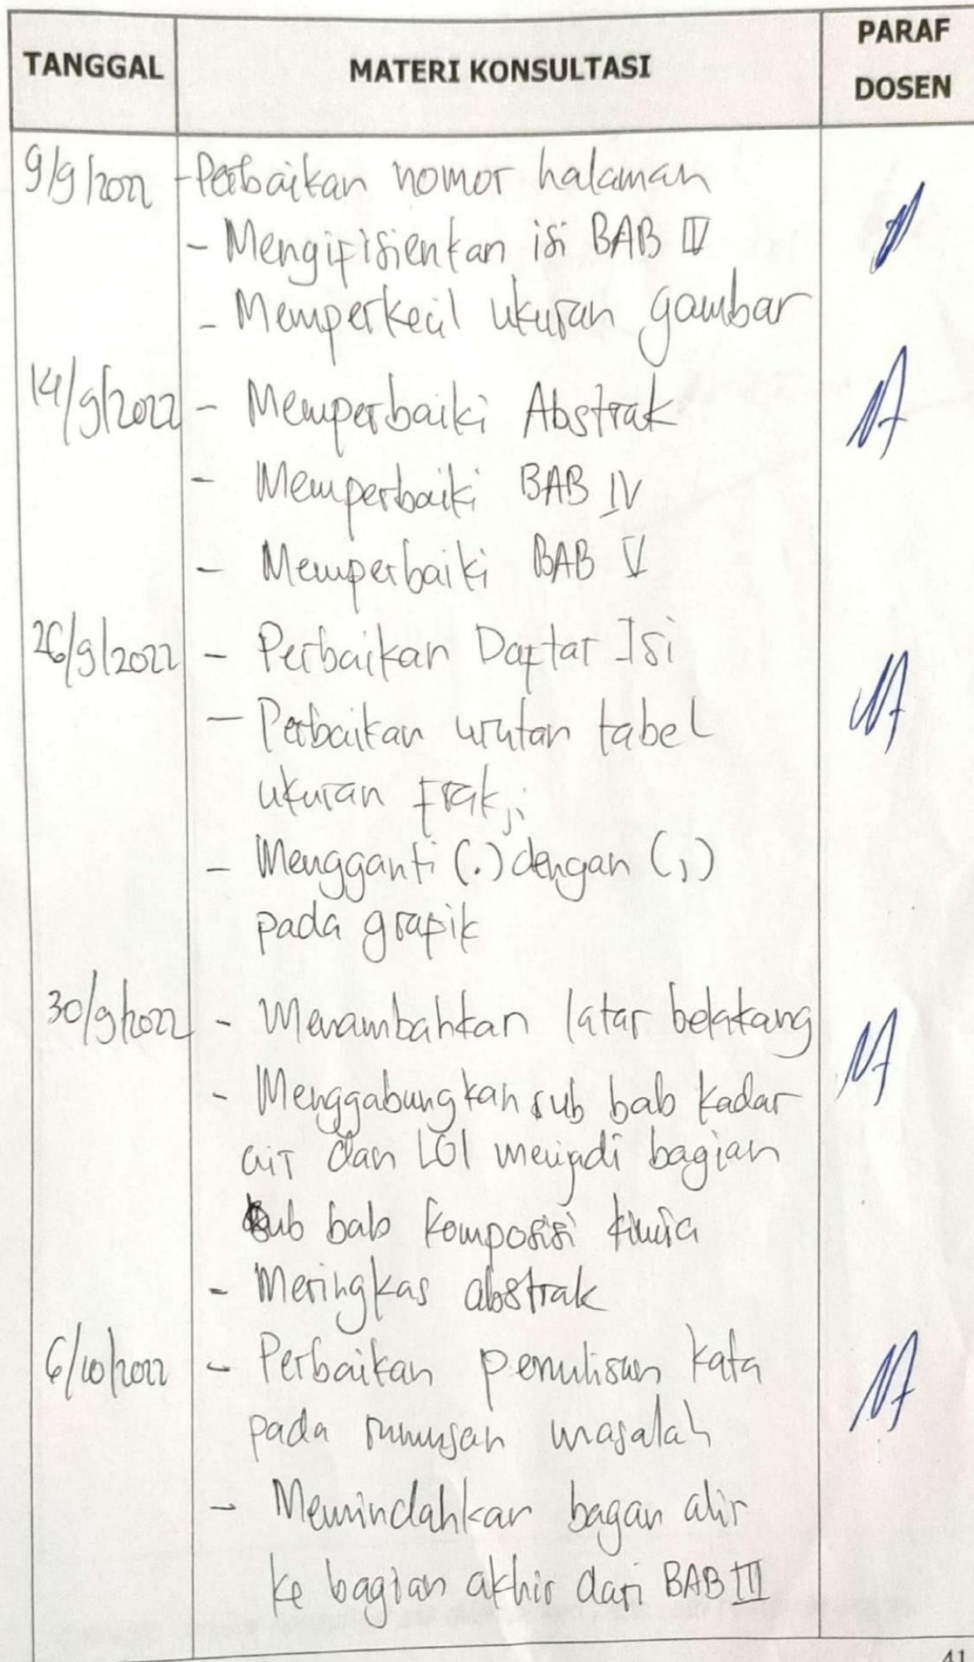 TANGGAL MATERI KONSULTASI PARAF
DOSEN
9/9/2022 - Perbaikan nomor halaman
- Mengifisienkan isi BAB IV
- Memperkecil ukuran gambar
14/9/2022 - Memperbaiki Abstrak
- Memperbaiki BAB IV
- Memperbaiki BAB V
26/9/2022 - Perbaikan Daftar Isi
- Perbaikan urutan tabel
ukuran fraksi
- Mengganti (.) dengan (,)
pada grafik
30/9/2022 - Menambahkan latar belakang
- Menggabungkan sub bab kadar
air dan LOI menjadi bagian
sub bab komposisi kimia
- Meringkas abstrak
6/10/2022 - Perbaikan penulisan kata
pada rumusan masalah
- Memindahkan bagan alir
ke bagian akhir dari BAB III
41